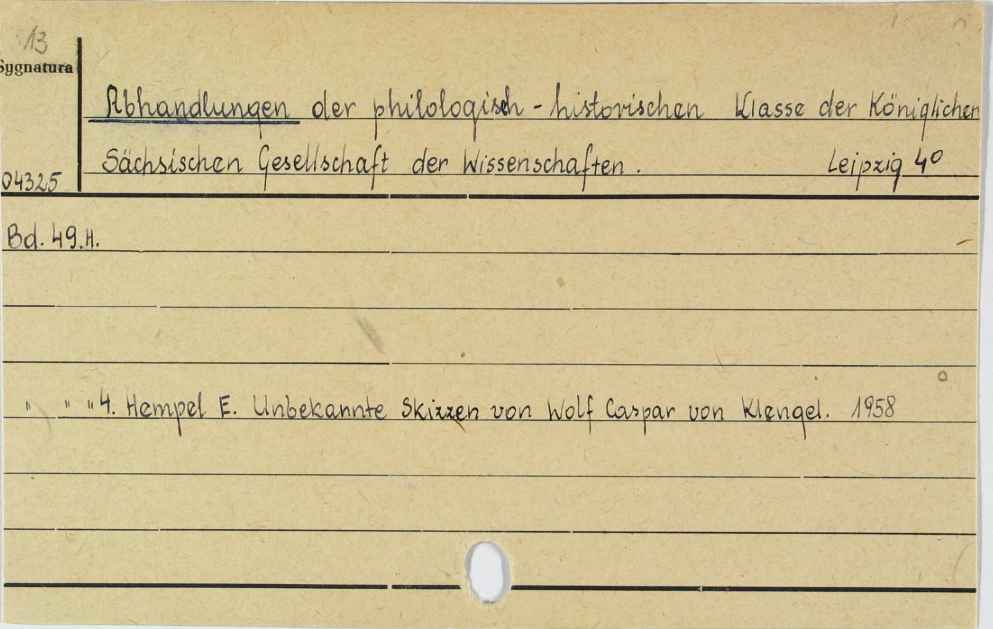 13
Sygnatura
Abhandlungen der philologisch - historischen Klasse der Königlichen
Sächsischen Gesellschaft der Wissenschaften. Leipzig 4°
04325
Bd. 49.H.
" " " 4. Hempel E. Unbekannte Skizzen von Wolf Caspar von Klengel. 1958